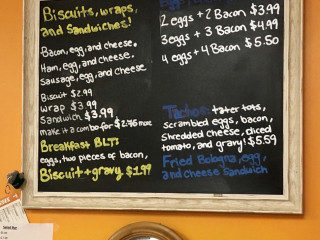 Biscuits, wraps,
and Sandwiches!
Bacon, egg, and cheese.
Ham, egg, and cheese.
Sausage, egg, and cheese
Biscuit $2.99
wrap $3.99
Sandwich $3.99
make it a combo for $2.75 more
Breakfast BLT:
eggs, two pieces of bacon,
Biscuit + gravy $1.99
2 eggs + 2 Bacon $3.99
3 eggs + 3 Bacon $4.99
4 eggs + 4 Bacon $5.50
Tachos: tater tots,
scrambled eggs, bacon,
Shredded cheese, diced
tomato, and gravy! $5.59
Fried Bologna, egg,
and cheese Sandwich